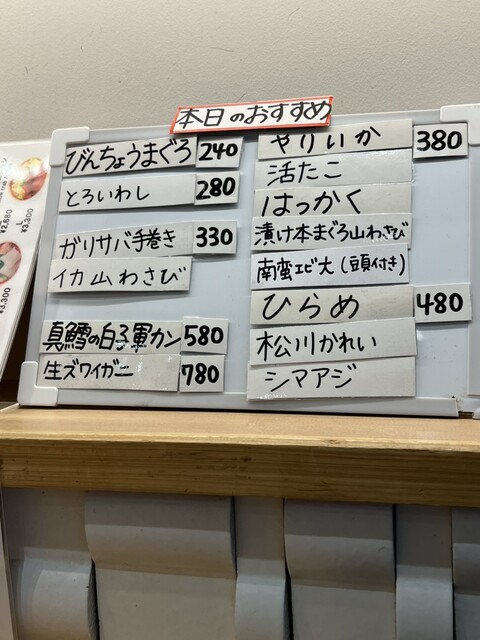 本日のおすすめ
びんちょうまぐろ 240
とろいわし 280
ガリサバ手巻き 330
イカ山わさび
真鱈の白子軍カン 580
生ズワイガニ 780
やりいか 380
活たこ
はっかく
漬け本まぐろ山わさび
南蛮エビ大(頭付き)
ひらめ 480
松川かれい
シマアジ
¥2,680
L
¥3,300
¥3,300